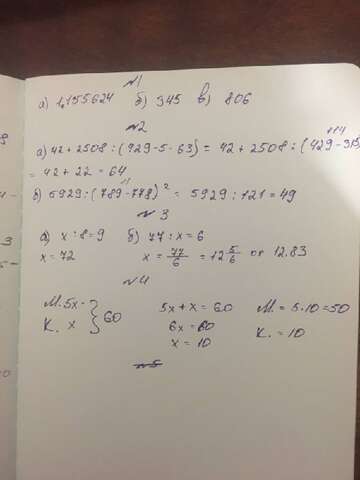 №1
а) 1,155624 б) 345 в) 806
№2
114
а) 42 + 2508 : (429 - 5 · 63) = 42 + 2508 : (429 - 315)
= 42 + 22 = 64
11
б) 5929 : (789 - 778)² = 5929 : 121 = 49
№3
а) x : 8 = 9 б) 77 : x = 6
x = 72 x = 77/6 = 12 5/6 or 12.83
№4
М. 5x - } 60 5x + x = 60 М. = 5 · 10 = 50
К. x 6x = 60 К. = 10
x = 10
№5